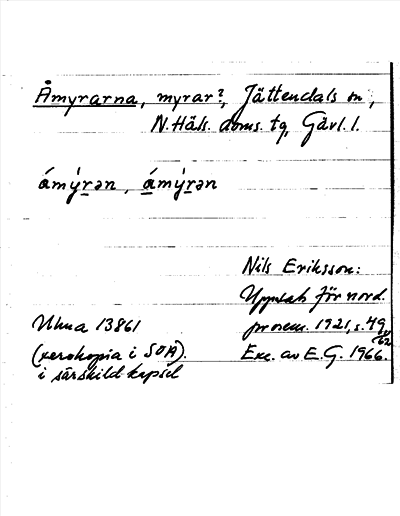 Åmyrarna, myrar?, Jättendals sn,
N. Häls. doms. tg, Gävl. l.
ámýrən, ámýrən
Nils Eriksson:
Uppsats för nord.
prosem. 1921, s. 49,
62
Ulma 13861
(xerokopia i SOA). Exc. av E.G. 1966.
i särskild kapsel